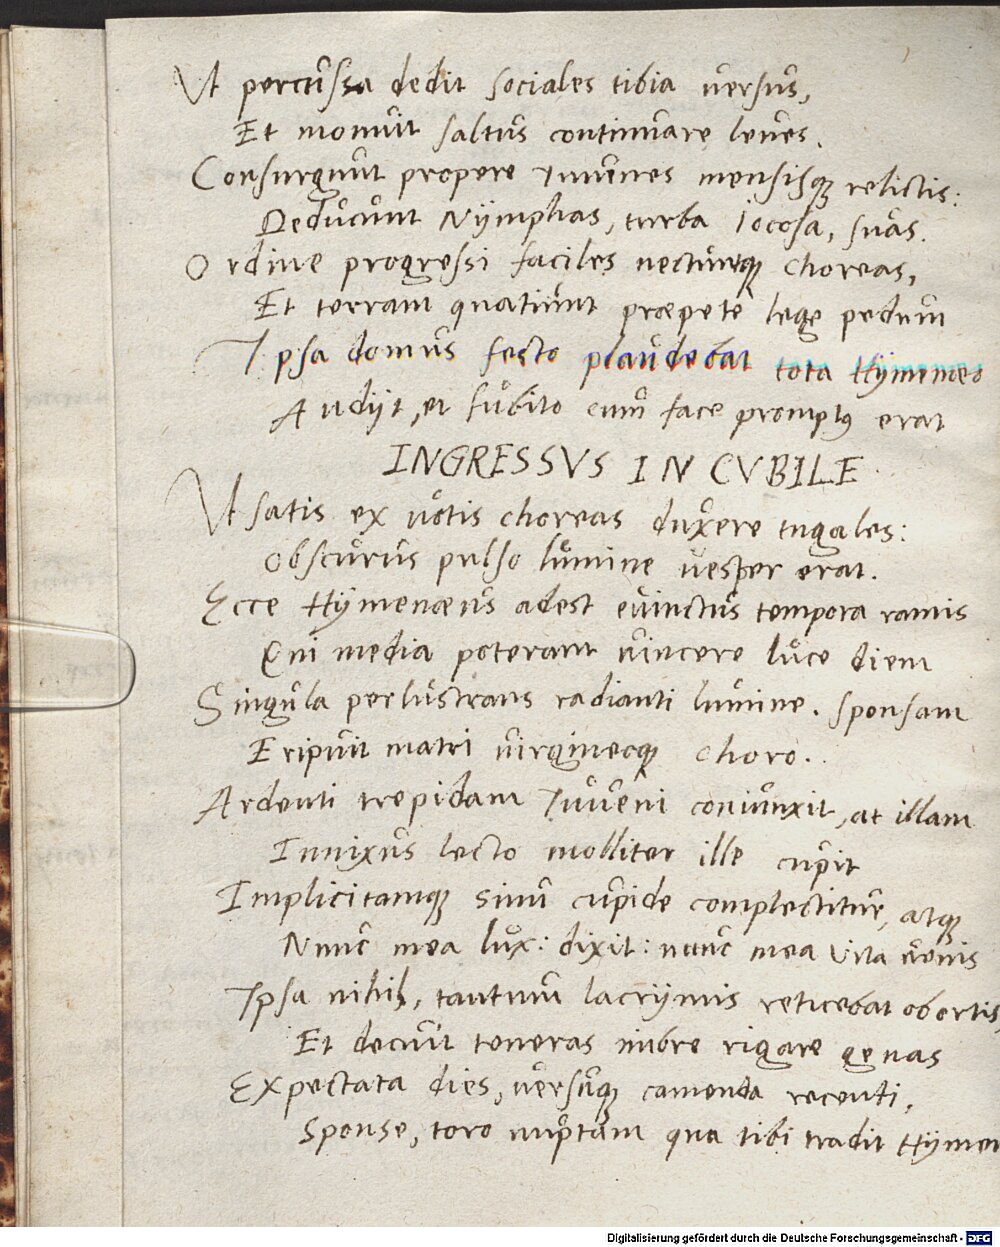 Ut percussa dedit sociales tibia versus,
Et monuit saltus continuare leues.
Consurgunt propere Iuuenes mensisq; relictis:
Deducunt Nÿmphas, turba iocosa, suas.
Ordine progressi faciles nectuntq; choreas,
Et terram quatiunt præpete lege pedum
Ipsa domus festo plaudebat tota Hÿmenæo
Audijt, et subito cum face promptus erat
INGRESSVS IN CVBILE.
Ut satis ex uotis choreas duxere iugales:
Obscurus pulso lumine uesper erat.
Ecce Hÿmenæus adest euinctus tempora ramis
Qui media poterant uincere luce diem
Singula perlustrans radianti lumine. sponsam
Eripuit matri uirgineoq; choro.
Ardenti trepidam Iuueni coniunxit, at illam
Innixus lecto molliter ille cupit
Implicitamq; sinu cupide complectitur, atq;
Nunc mea lux: dixit: nunc mea vita uenis
Ipsa nihil, tantum lacrÿmis reticebat obortis
Et decuit teneras imbre rigare genas
Expectata dies, uersuq; canenda recenti,
Sponse, toro nuptam qua tibi tradit Hÿmen
Digitalisierung gefördert durch die Deutsche Forschungsgemeinschaft - DFG